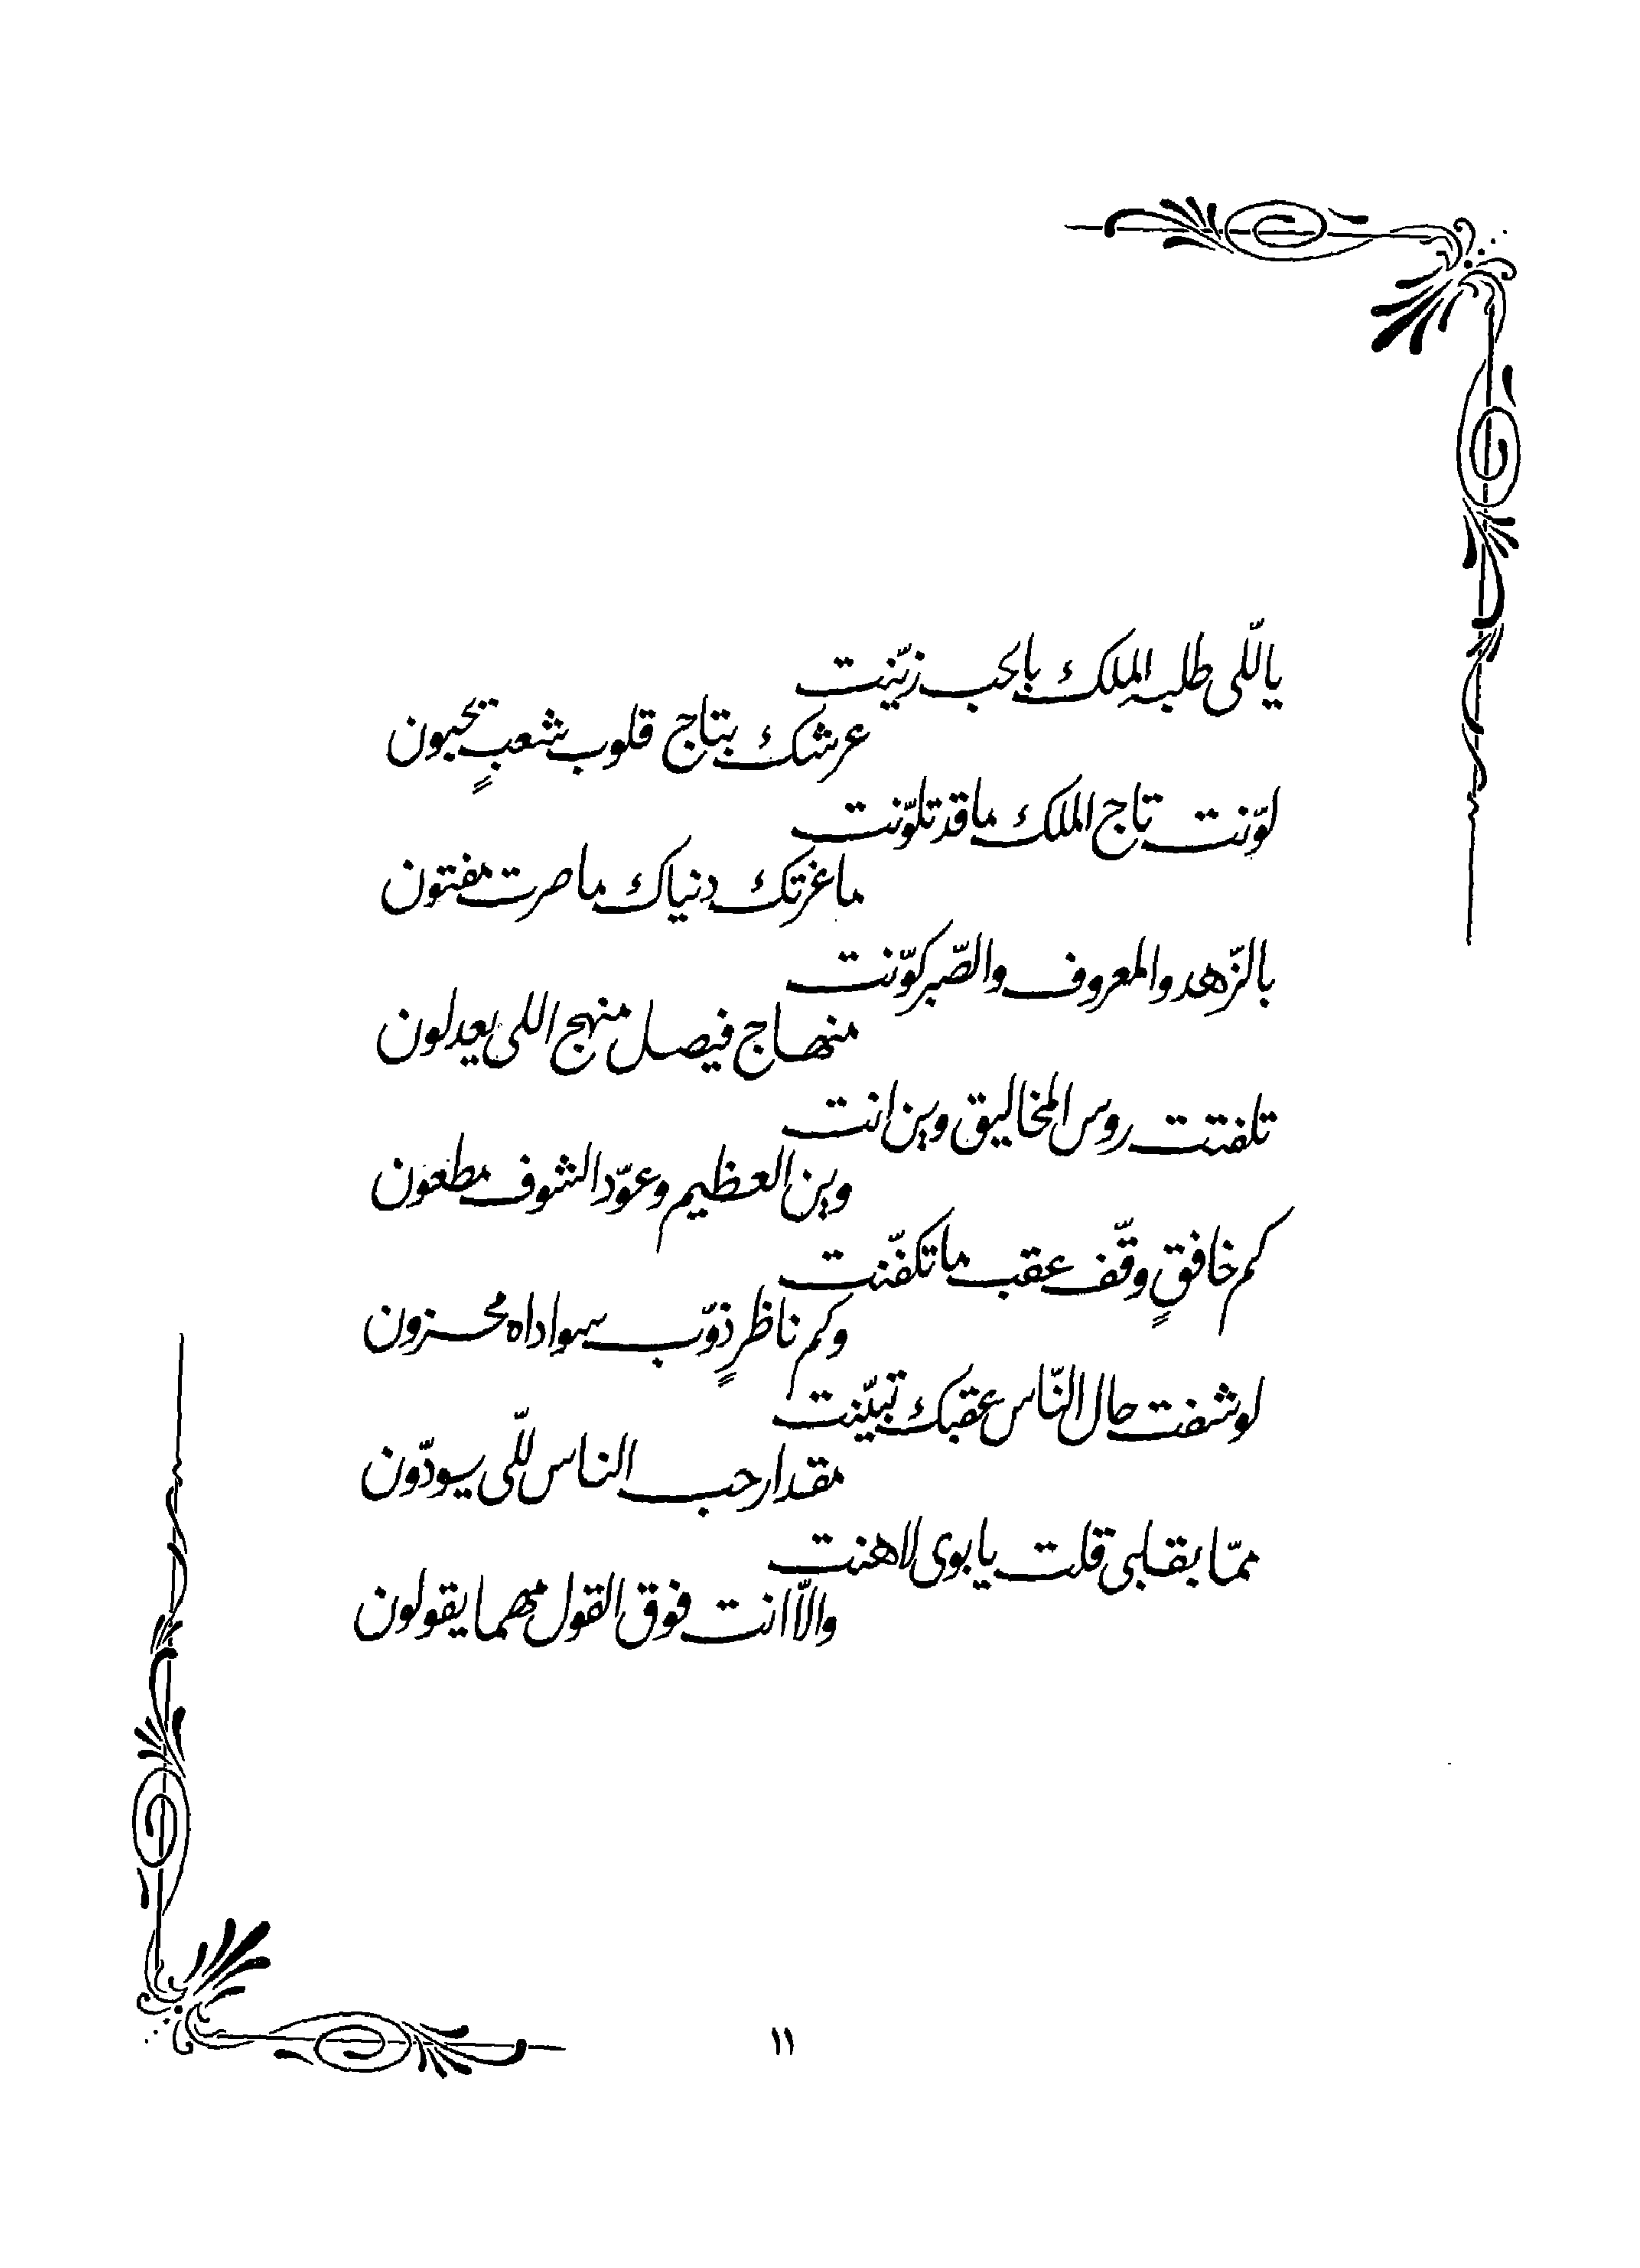 ياللّي طلبه الملك بالحب زيّنت
عرشك بتاج قلوب شعبٍ تحبون
لوّنت تاج الملك ما قد تلوّنت
ما غرتك دنياك ما صرت مفتون
بالزّهد والمعروف والصّبر كوّنت
منهاج فيصل منهج اللي يعدلون
تلفتت روس المخاليق وين انت
وين العظيم وعوّد الشوف مطعون
كم خافقٍ وقّف عقب ما تكفّنت
وكم ناظرٍ ذوّب سواداه محزون
لو شفت حال النّاس عقبك تبيّنت
مقدار حب الناس للّي يسودّون
ممّا بقلبي قلت يابوي لاهنت
والاّ انت فوق القول مهما يقولون
١١